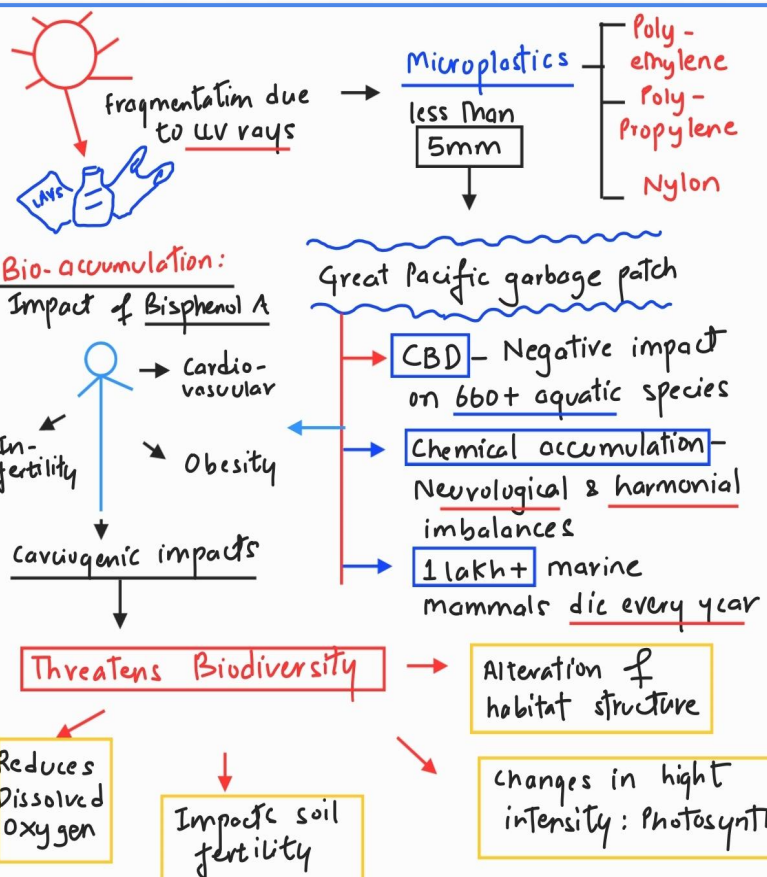 fragmentation due
to UV rays
Microplastics
less than
5mm
Poly-
ethylene
Poly-
Propylene
Nylon
LAYS
Great Pacific garbage patch
Bio-accumulation:
Impact of Bisphenol A
Cardio-
vascular
In-
fertility
Obesity
Carciogenic impacts
CBD - Negative impact
on 660+ aquatic species
Chemical accumulation-
Neurological & harmonial
imbalances
1 lakh+ marine
mammals die every year
Threatens Biodiversity
Alteration of
habitat structure
Reduces
Dissolved
Oxygen
Impacts soil
fertility
Changes in hight
intensity: Photosynt